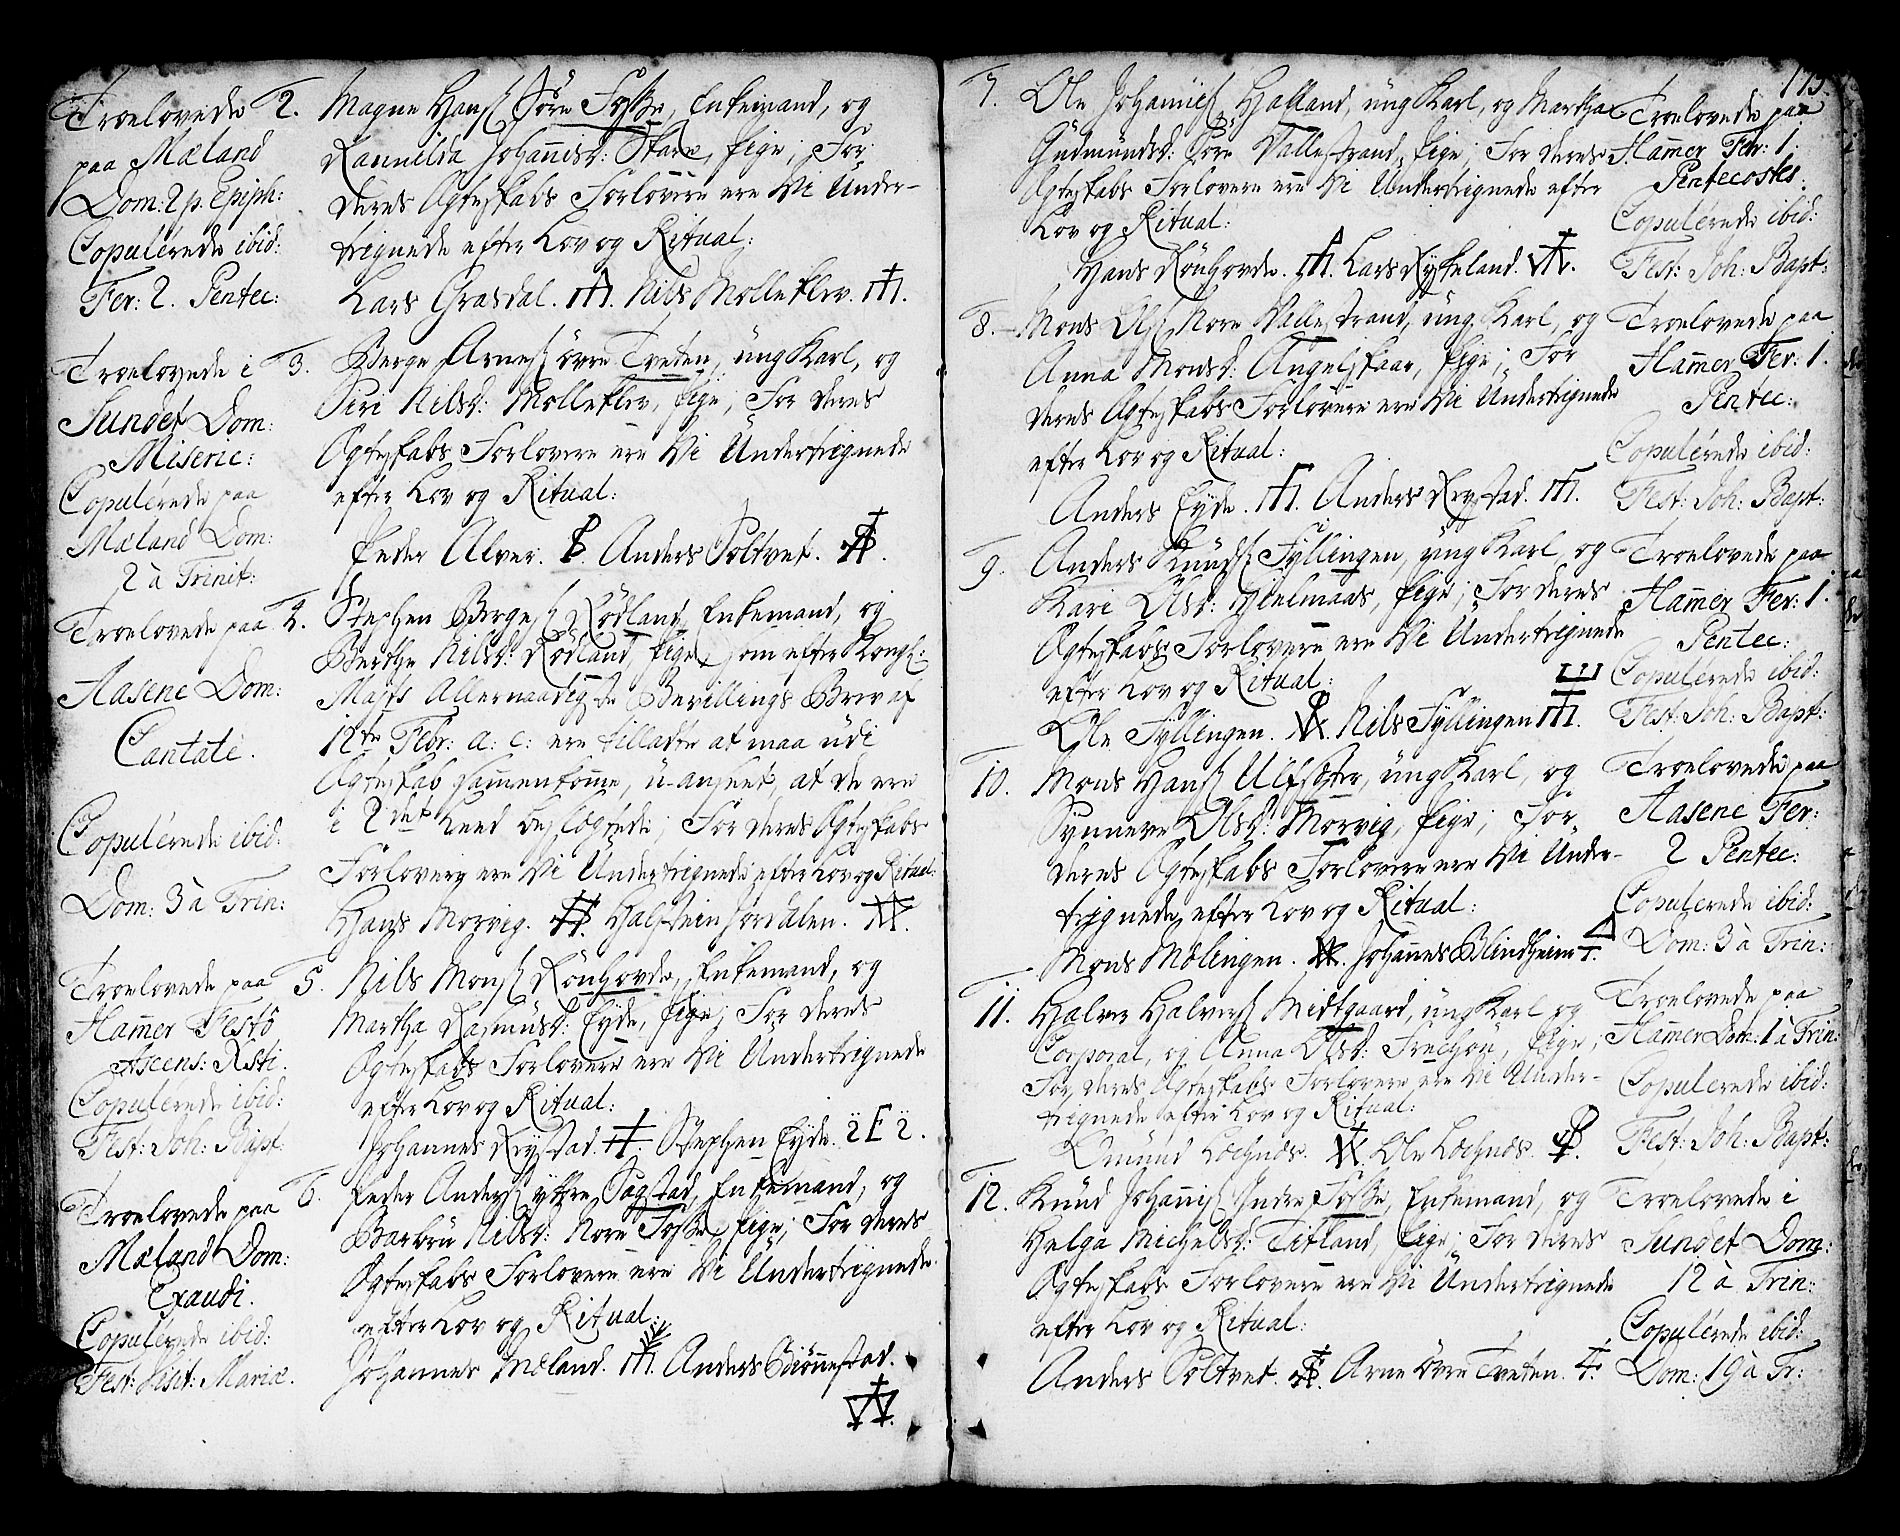 Troelovede
paa Mæland
Dom: 2 p. Epiph:
Copulerede ibid:
Fer: 2. Pentec:
2. Magne Hans Søre Fosse, Enkemand, og
Rannilda Johannisd: Stare, Pige; For
deres Ægteskabs Forlovere ere Vi Under-
tegnede efter Lov og Ritual:
Lars Grasdal. Nils Molleklev.
Troelovede i
Sundet Dom:
Miseric:
Copulerede paa
Mæland Dom:
2 à Trinit:
3. Berge Arnes øvre Tveten, ung Karl, og
Siri Nilsd: Molleklev, Pige; For deres
Ægteskabs Forlovere ere Vi Undertegnede
efter Lov og Ritual:
Peder Alver. Anders Soltvet.
Troelovede paa
Aasene Dom:
Cantate.
Copulerede ibid:
Dom: 3 à Trin:
4. Stephen Berges Rødland, Enkemand, og
Berthe Nilsd: Rødland, Pige, som efter Kongl:
Majts Allernaadigste Bevillings Brev af
12te Febr: a: c: ere tilladte at maa udi
Ægteskab sammenkomme, u-anseet, at de ere
i 2det Leed beslægtede; For deres Ægteskabs
Forlovere ere Vi Undertegnede efter Lov og Ritual:
Hans Morvig. Halstein Jordalen.
Troelovede paa
Hamer Festo
Ascens: Xsti.
Copulerede ibid:
Fest: Joh: Bapt:
5. Nils Mons Rønhovde, Enkemand, og
Martha Rasmusd: Eyde, Pige; For deres
Ægteskabs Forlovere ere Vi Undertegnede
efter Lov og Ritual:
Johannes Rystad. Stephen Eyde.
Troelovede paa
Mæland Dom:
Exaudi.
Copulerede ibid:
Fest: Visit: Mariæ.
6. Peder Anders ytre Sagstad, Enkemand, og
Barbru Nilsd: Nore Fosse, Pige; For deres
Ægteskabs Forlovere ere Vi Undertegnede
efter Lov og Ritual:
Johannes Mæland. Anders Biønnestad.
175.
7. Ole Johannis Hjalland, ung Karl, og Martha
Gudmundsd: Søre Vallestrand, Pige; For deres
Ægteskabs Forlovere ere Vi Undertegnede efter
Lov og Ritual:
Hans Rønhovde. Lars Rykeland.
Troelovede paa
Hamer Fer: 1.
Pentecostes.
Copulerede ibid:
Fest: Joh: Bapt:
8. Mons Ols Nore Vallestrand, ung Karl, og
Anna Monsd: Angelskaar, Pige; For
deres Ægteskabs Forlovere ere Vi Undertegnede
efter Lov og Ritual:
Anders Eyde. Anders Rystad.
Troelovede paa
Hamer Fer: 1.
Pentec:
Copulerede ibid:
Fest: Joh: Bapt:
9. Anders Knuds Fyllingen, ung Karl, og
Kari Olsd: Hielmaas, Pige; For deres
Ægteskabs Forlovere ere Vi Undertegnede
efter Lov og Ritual:
Ole Fyllingen. Nils Fyllingen
Troelovede paa
Hamer Fer: 1.
Pentec:
Copulerede ibid:
Fest: Joh: Bapt:
10. Mons Hans Ulfsæter, ung Karl, og
Synneve Olsd: Morvig, Pige; For
deres Ægteskabs Forlovere ere Vi Under-
tegnede efter Lov og Ritual:
Mons Mølingen. Johannes Blindheim
Troelovede paa
Aasene Fer:
2 Pentec:
Copulerede ibid:
Dom: 3 à Trin:
11. Halvor Halvors Midtgaard, ung Karl og
Corporal, og Anna Olsd: Frechoug, Pige;
For deres Ægteskabs Forlovere ere Vi Under-
tegnede efter Lov og Ritual:
Omund Lochnds. Ole Lochnds.
Troelovede paa
Hamer Dom: 1 à Trin:
Copulerede ibid:
Fest: Joh: Bapt:
12. Knud Johannis Indre Fosse, Enkemand, og
Helga Michelsd: Titland, Pige; For deres
Ægteskabs Forlovere ere Vi Undertegnede
efter Lov og Ritual:
Anders Soltvet. Arne øvre Tveten.
Troelovede i
Sundet Dom:
12 à Trin:
Copulerede ibid:
Dom: 19 à Tr: